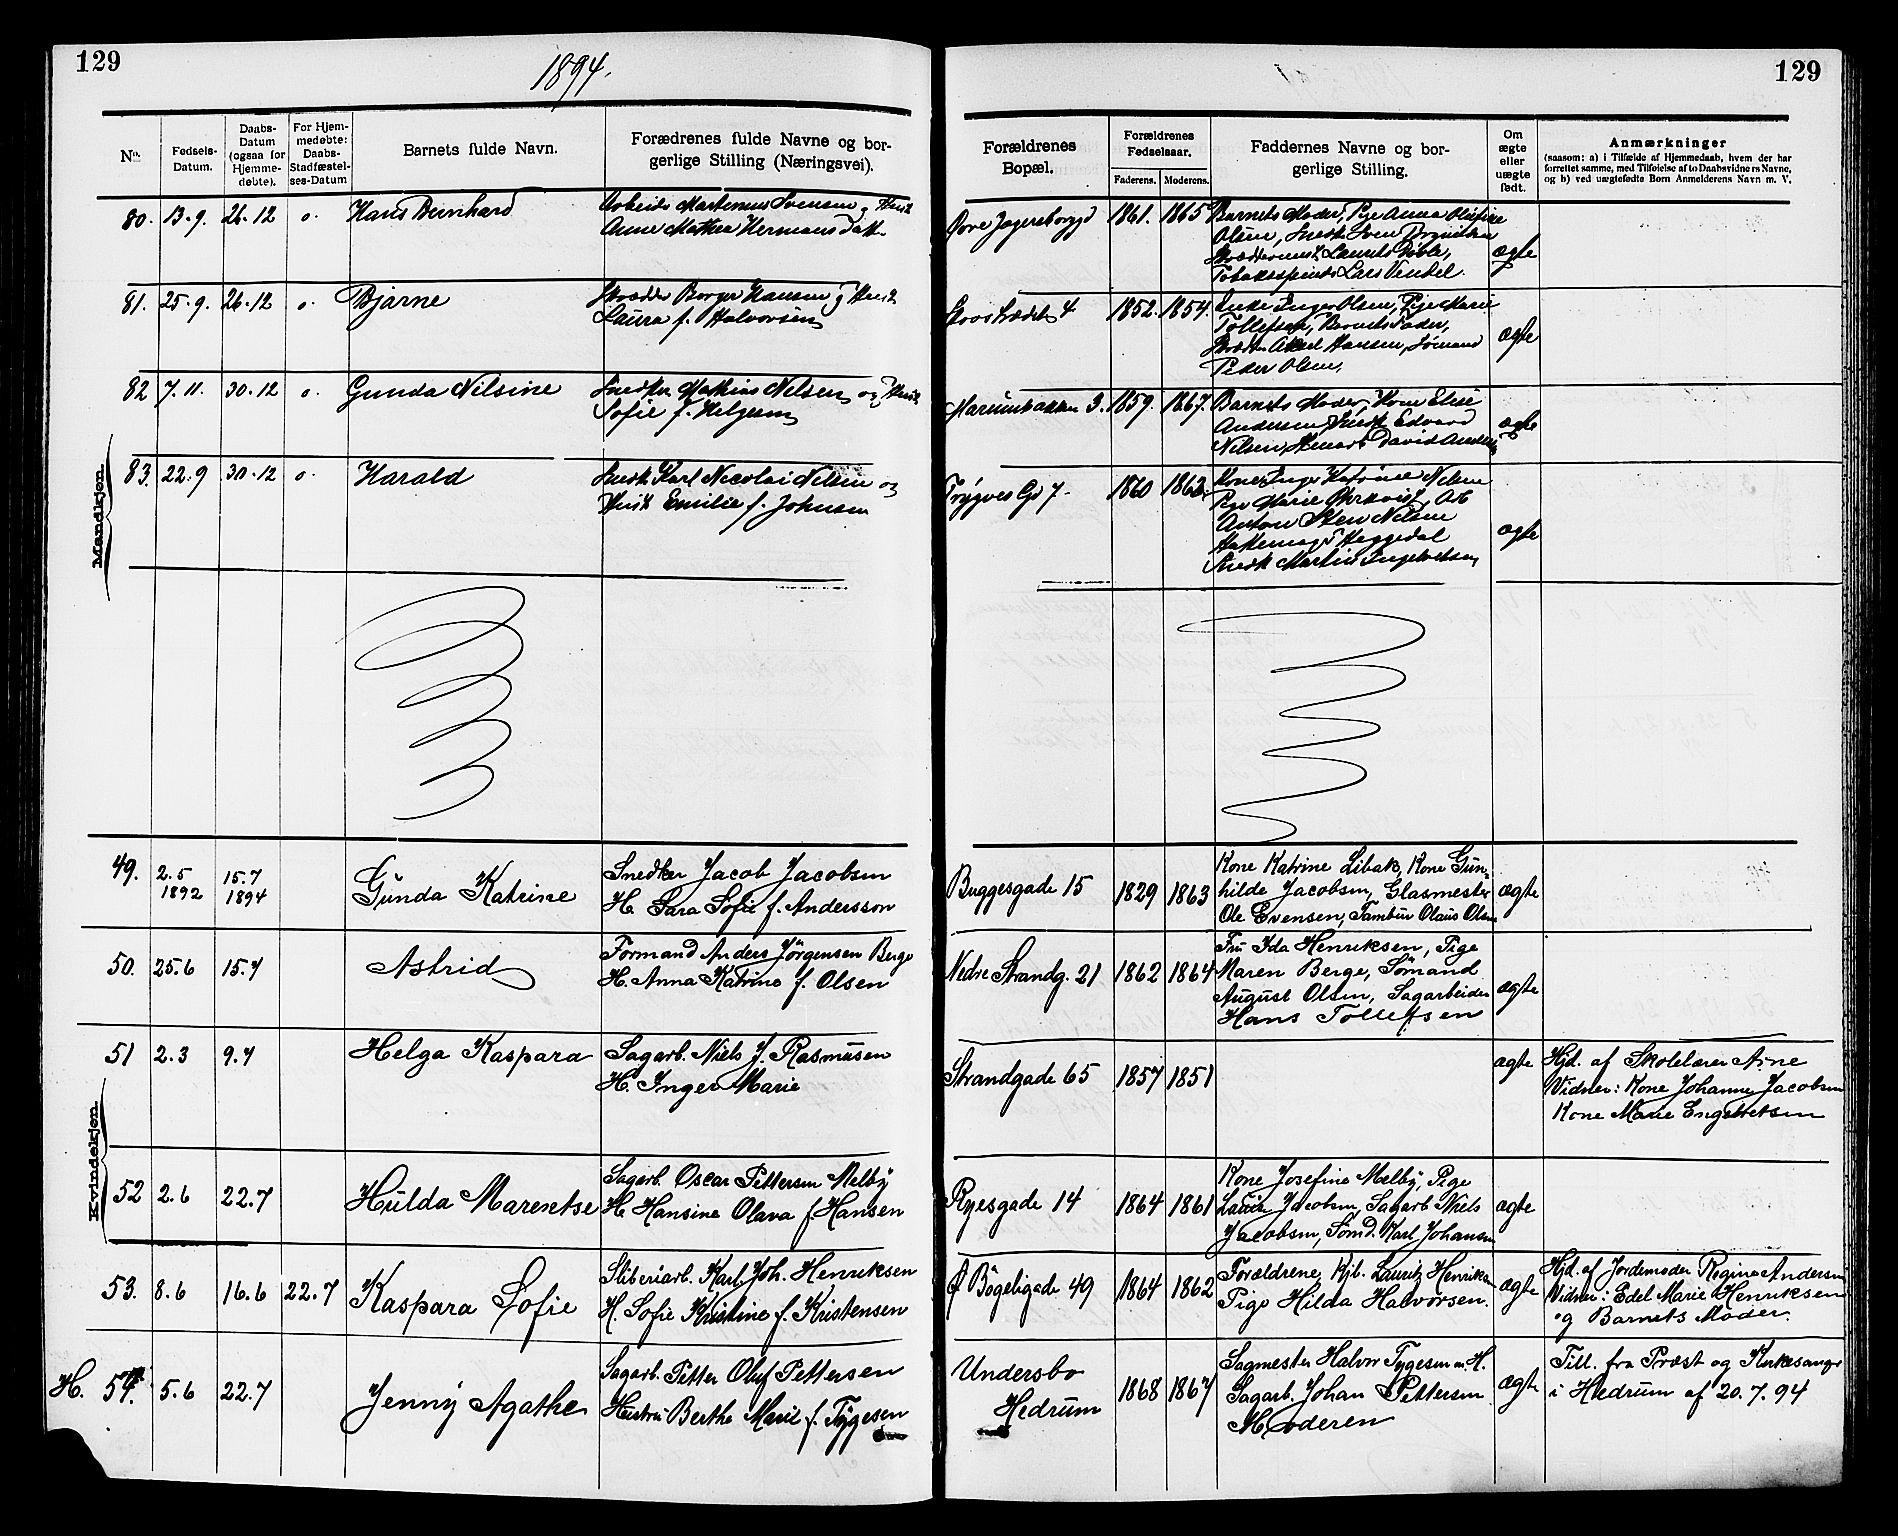 129
1894.
129
No.
Fødsels-Datum.
Daabs-Datum (ogsaa for Hjemme-døbte).
For Hjem-medøbte: Daabs-Stadfæstel-ses-Datum
Barnets fulde Navn.
Forædrenes fulde Navne og bor-
gerlige Stilling (Næringsvei).
Forældrenes
Bopæl.
Forældrenes
Fødselsaar.
Faderens. Moderens.
Faddernes Navne og bor-
gerlige Stilling.
Om ægte eller uægte født.
Anmærkninger
(saasom: a) i Tilfælde af Hjemmedaab, hvem der har
forrettet samme, med Tilføielse af to Daabsvidners Navne,
og b) ved uægtefødte Børn Anmelderens Navn m. V.
Mandkjøn.
80. 13.9. 26.12 o. Hans Bernhard
Arbeider Martenius Svensen og Hust
Anne Mathea Hermansdatt
Øvre Jegersborggd 1861. 1865
Barnets Moder, Pige Anna Olefine
Olsen, Snedk Sven
Laurits
Lars Vendel.
ægte
81. 25.9. 26.12 o. Bjarne
Skrædder Borger Hansen og Hust
Laura f. Halvorsen
4 1852. 1854.
Enke Inger Olsen, Pige
Tollefsen, Barnets Fader,
Skrædder Axel Hansen, Sømand
Peder Olsen.
ægte
82 7.11. 30.12 o. Gunda Nilsine
Snedker Mathias Nilsen og Hust
Sofie f. Helgesen
3. 1859. 1867.
Barnets Moder, Kone Elise
Andersen, Snedk Edvard
Nilsen, David Anders
ægte
83. 22.9 30.12 o. Harald
Snedk Karl Nicolai Nilsen og
Hust Emilie f. Johnsen
Trygves Gd 7. 1860 1862.
Kone Inger Katrine Nilsen
Pige Marie Arb
Anton Sten Nilsen
Heggedal
Snedk Martin Ingebretsen
ægte
Kvindekjøn.
49. 2.5 1892 15.7 1894 Gunda Katrine
Snedker Jacob Jacobsen
H. Sara Sofie f. Andersson
Buggesgade 15 1829 1863
Kone Katrine Libak, Kone Gun-
hilde Jacobsen, Glasmester
Ole Evensen, Tambur Olaus Olsen
ægte
50. 25.6 15.7 Astrid
Formand Anders Jørgensen Berge
H. Anna Katrine f. Olsen
Nedre Strandg. 21 1862 1864
Fru Ida Henriksen, Pige
Maren Berge, Sømand
August Olsen, Sagarbeider
Hans Tollefsen
ægte
51 2.3 9.7 Helga Kaspara
Sagarb. Niels J. Rasmusen
H. Inger Marie
Strandgade 65 1857 1851
ægte
Hjd. af Skolelærer Arne
Vidner: Kone Johanne Jacobsen
Kone Marie Engebretsen
52 2.6 22.7 Hulda Marentse
Sagarb. Oscar Pettersen Melby
H. Hansine Olava f. Hansen
Ryesgade 14 1864 1861
Kone Josefine Melby, Pige
Laura Jacobsen, Sagarb Niels
Jacobsen, Sømd. Karl Johansen
ægte
53. 8.6 16.6 22.7 Kaspara Sofie
Sliberiarb. Karl Joh. Henriksen
H. Sofie Kristine f. Kristensen
Ø Bøgeligade 49 1864 1862
Forældrene, Kjb. Lauritz Henriksen
Pige Hilda Halvorsen.
ægte
Hjd. af Jordemoder Regine Andersen
Vidner: Edel Marie Henriksen
og Barnets Moder.
H. 54. 5.6 22.7 Jenny Agathe
Sagarb. Petter Oluf Pettersen
Hustru Berthe Marie f. Tygesen
Undersbo
Hedrum
1868 1867
Sagmester Halvor Tygesen m. H.
Sagarb. Johan Pettersen
Moderen
ægte
Till. fra Præst og Kirkesanger
i Hedrum af 20.7.94